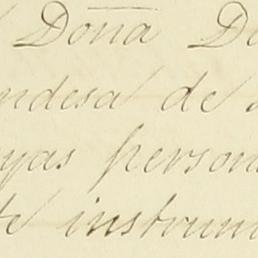 Doña D
ndesa de
yas person
te instrum